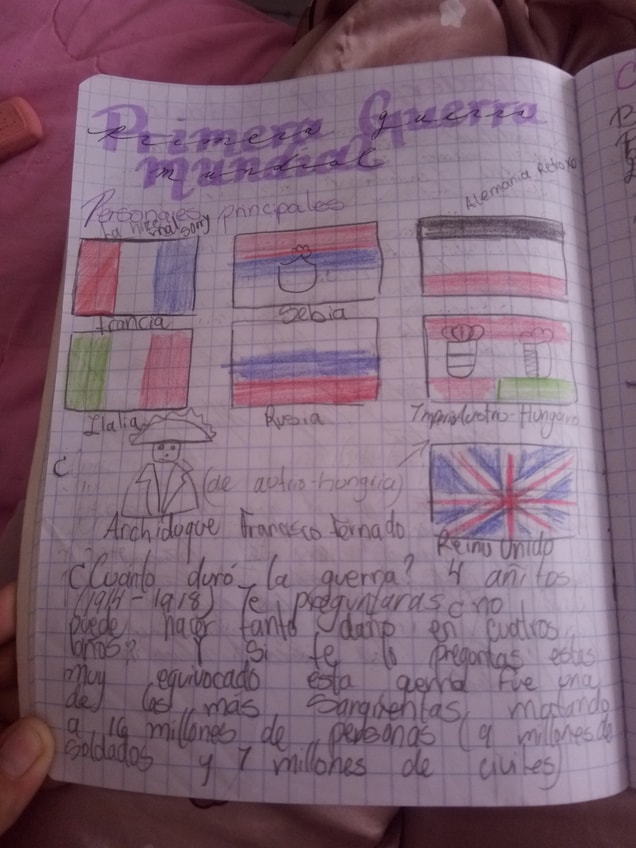 Primera Guerra
mundial
Personajes principales
La hice mal sorry
Alemania Retroxo
Francia
Sebia
Llalia
Rusia
Imperioustro-Hungaro
(de autrio-hungria)
Archiduque Francisco Fernado
Reino Unido
¿Cuánto duró la guerra? 4 añitos
(1914-1918) Te preguntaras ¿no
puede hacer tanto daño en cuatros
años? Y si te lo preguntas estas
muy equivocado esta guerra fue una
de las mas sangrientas, matando
a 16 millones de personas (9 millones de
soldados y 7 millones de civiles)